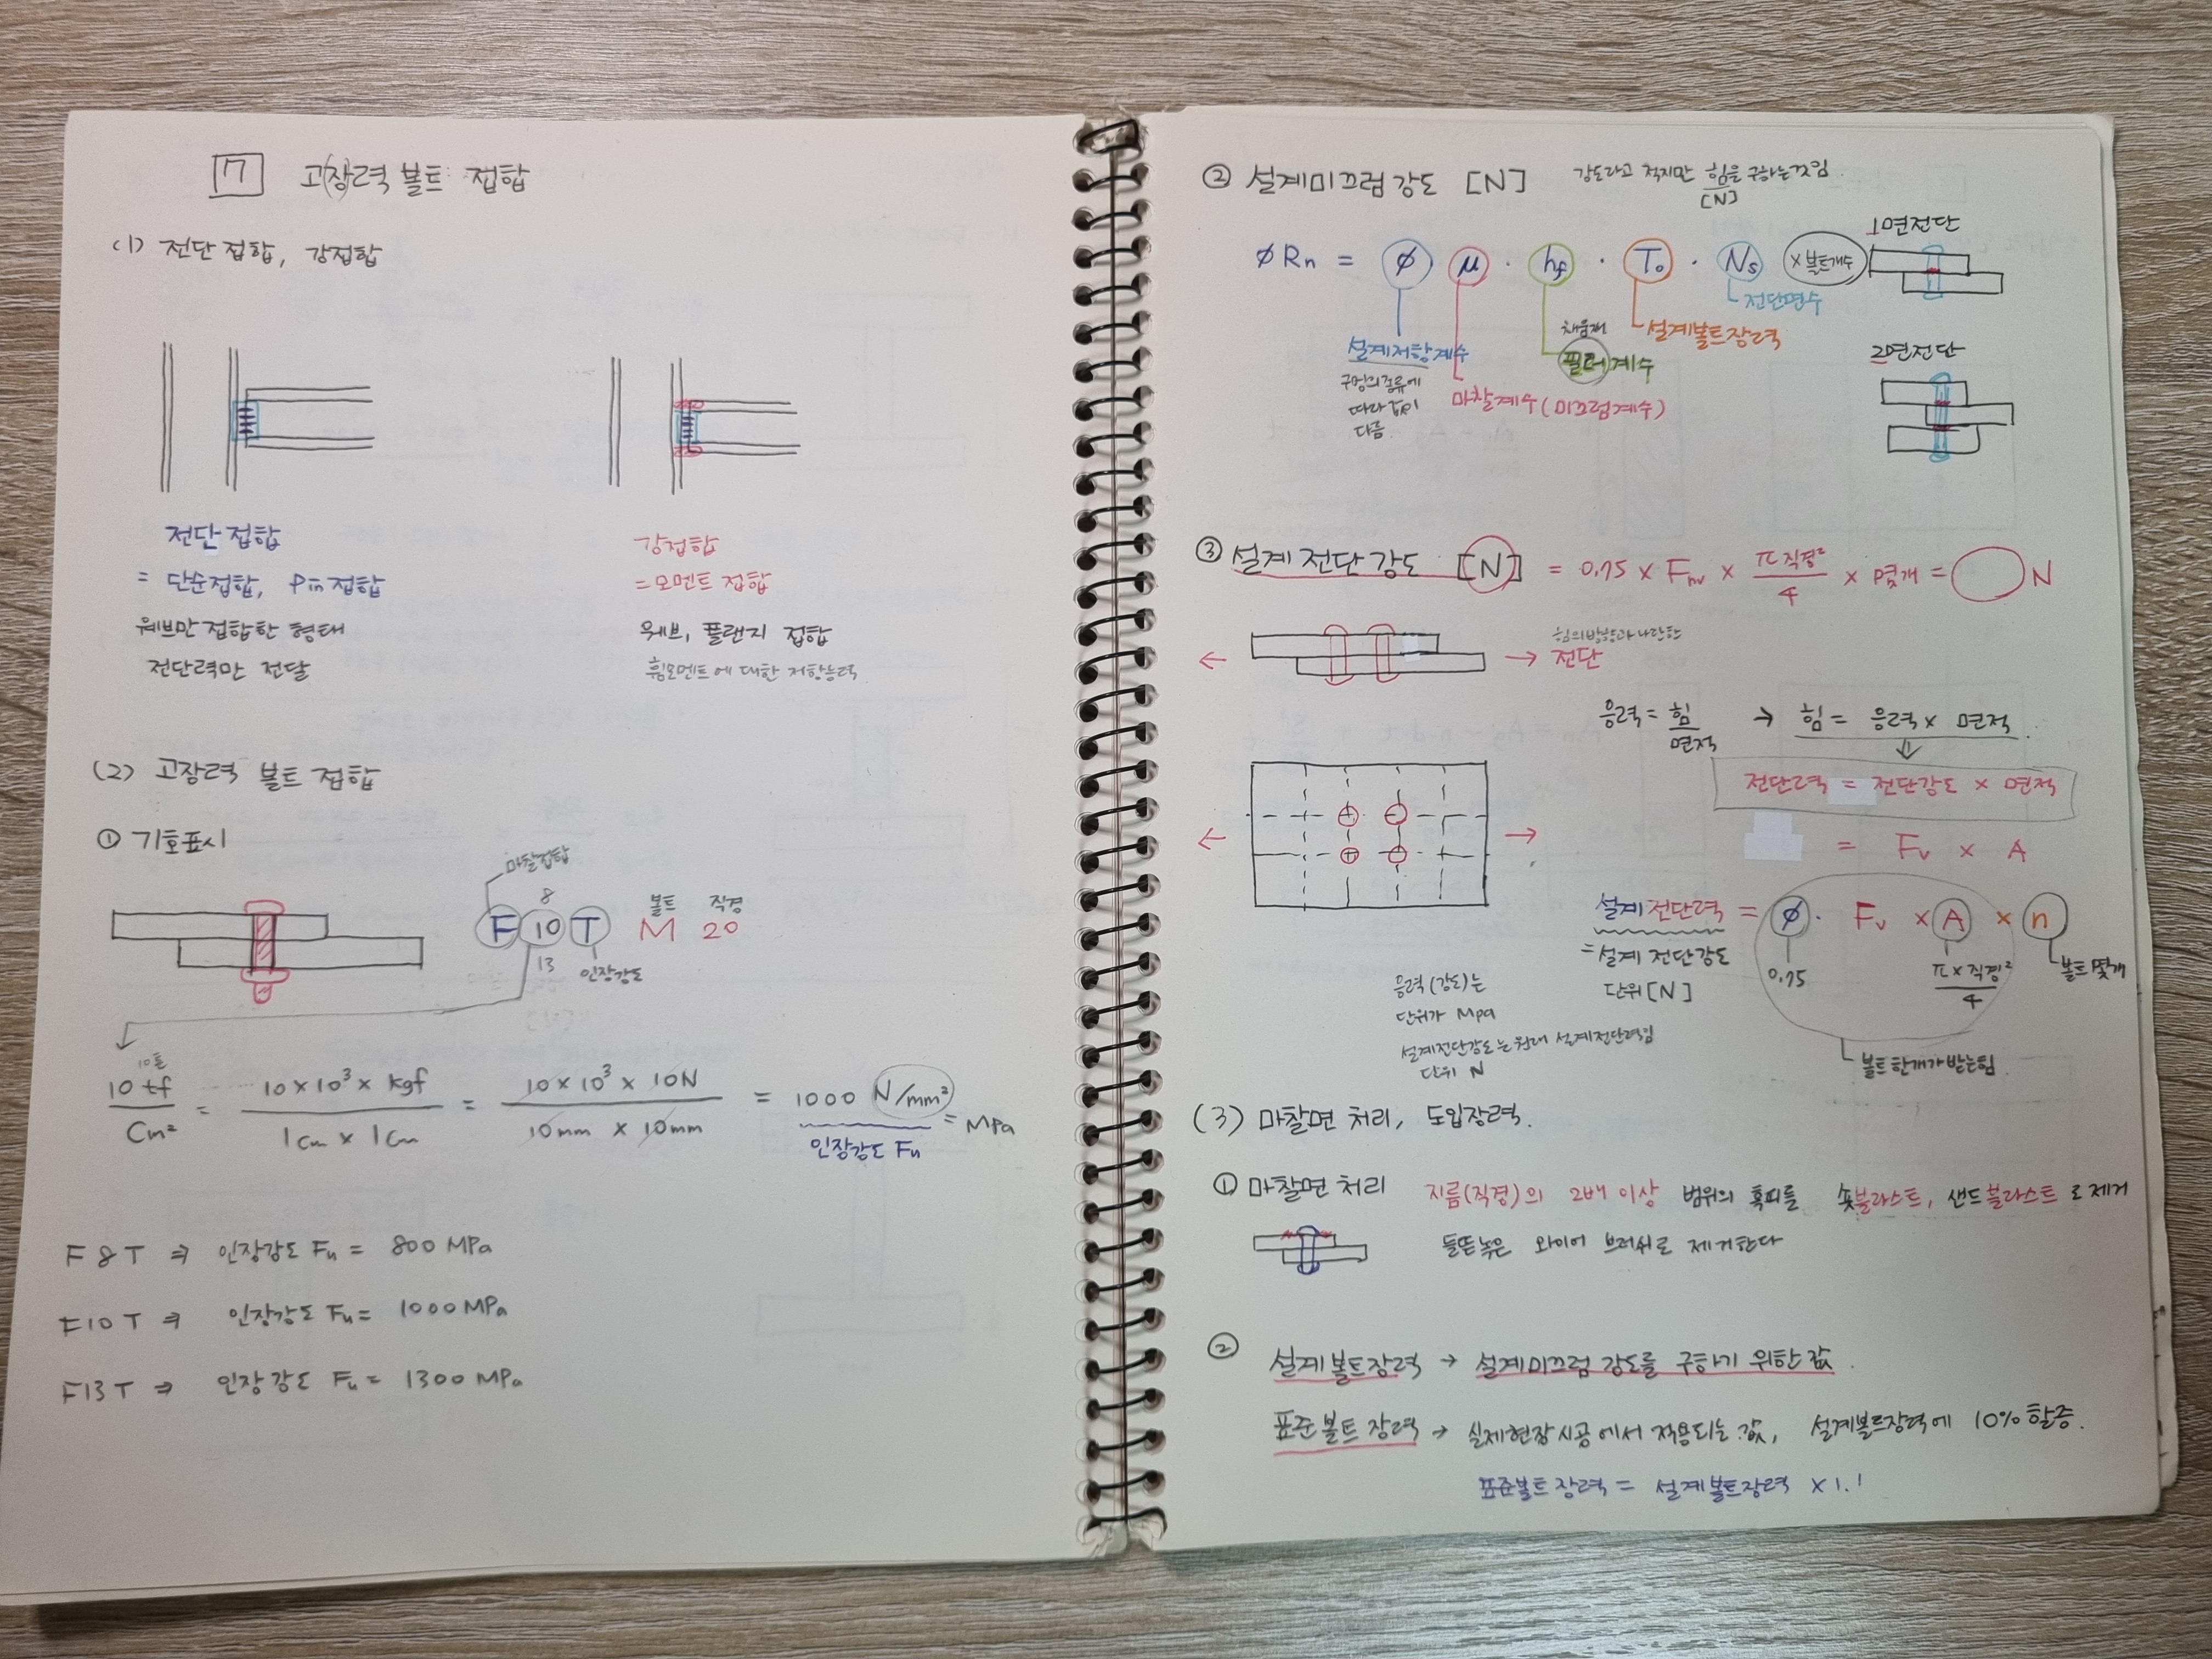 7 고장력 볼트 접합
(1) 전단 접합, 강접합
전단 접합
= 단순접합, Pin 접합
웨브만 접합한 형태
전단력만 전달
강접합
= 모멘트 접합
웨브, 플랜지 접합
휨모멘트에 대한 저항능력
(2) 고장력 볼트 접합
① 기호표시
마찰접합
8
볼트 직경
F 10 T M 20
13
인장강도
10톤
10 tf / cm² = 10 × 10³ × kgf / 1cm × 1cm = 10 × 10³ × 10N / 10mm × 10mm = 1000 N/mm² = MPa
인장강도 Fu
F8T ⇒ 인장강도 Fu = 800 MPa
F10T ⇒ 인장강도 Fu = 1000 MPa
F13T ⇒ 인장강도 Fu = 1300 MPa
② 설계미끄럼강도 [N] 강도라고 적지만 힘을 구하는것임.
[N]
1면전단
ϕRn = ϕ · μ · hf · To · Ns × 볼트개수
전단면수
설계볼트장력
채움재
필러계수
설계저항계수
구멍의 종류에
따라 값이
다름.
마찰계수(미끄럼계수)
2면전단
③ 설계 전단강도 [N] = 0.75 × Fnv × π직경² / 4 × n몇개 = N
힘의방향과 나란한
전단
응력 = 힘 / 면적 → 힘 = 응력 × 면적.
전단력 = 전단강도 × 면적
= Fv × A
설계전단력 = ϕ · Fv × A × n
= 설계 전단강도
단위 [N]
0.75
π × 직경² / 4
볼트 몇개
볼트한개가 받는힘.
응력(강도)는
단위가 Mpa
설계전단강도는 원래 설계전단력임
단위 N
(3) 마찰면 처리, 도입장력.
① 마찰면 처리 지름(직경)의 2배 이상 범위의 흑피를 숏블라스트, 샌드블라스트로 제거
들뜬녹은 와이어 브러쉬로 제거한다
② 설계볼트장력 → 설계미끄럼 강도를 구하기 위한 값.
표준볼트장력 → 실제현장시공에서 적용되는 값, 설계볼트장력에 10% 할증.
표준볼트장력 = 설계볼트장력 × 1.1